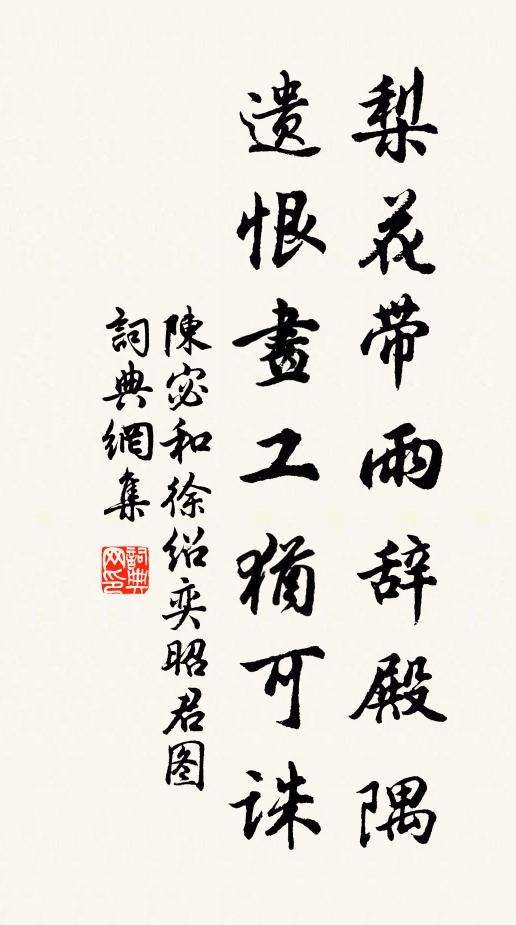 梨花带雨辞殿隅
遗恨畫工猶可誅
陳宓和徐绍奕昭君图
詞典網集
詞典網印